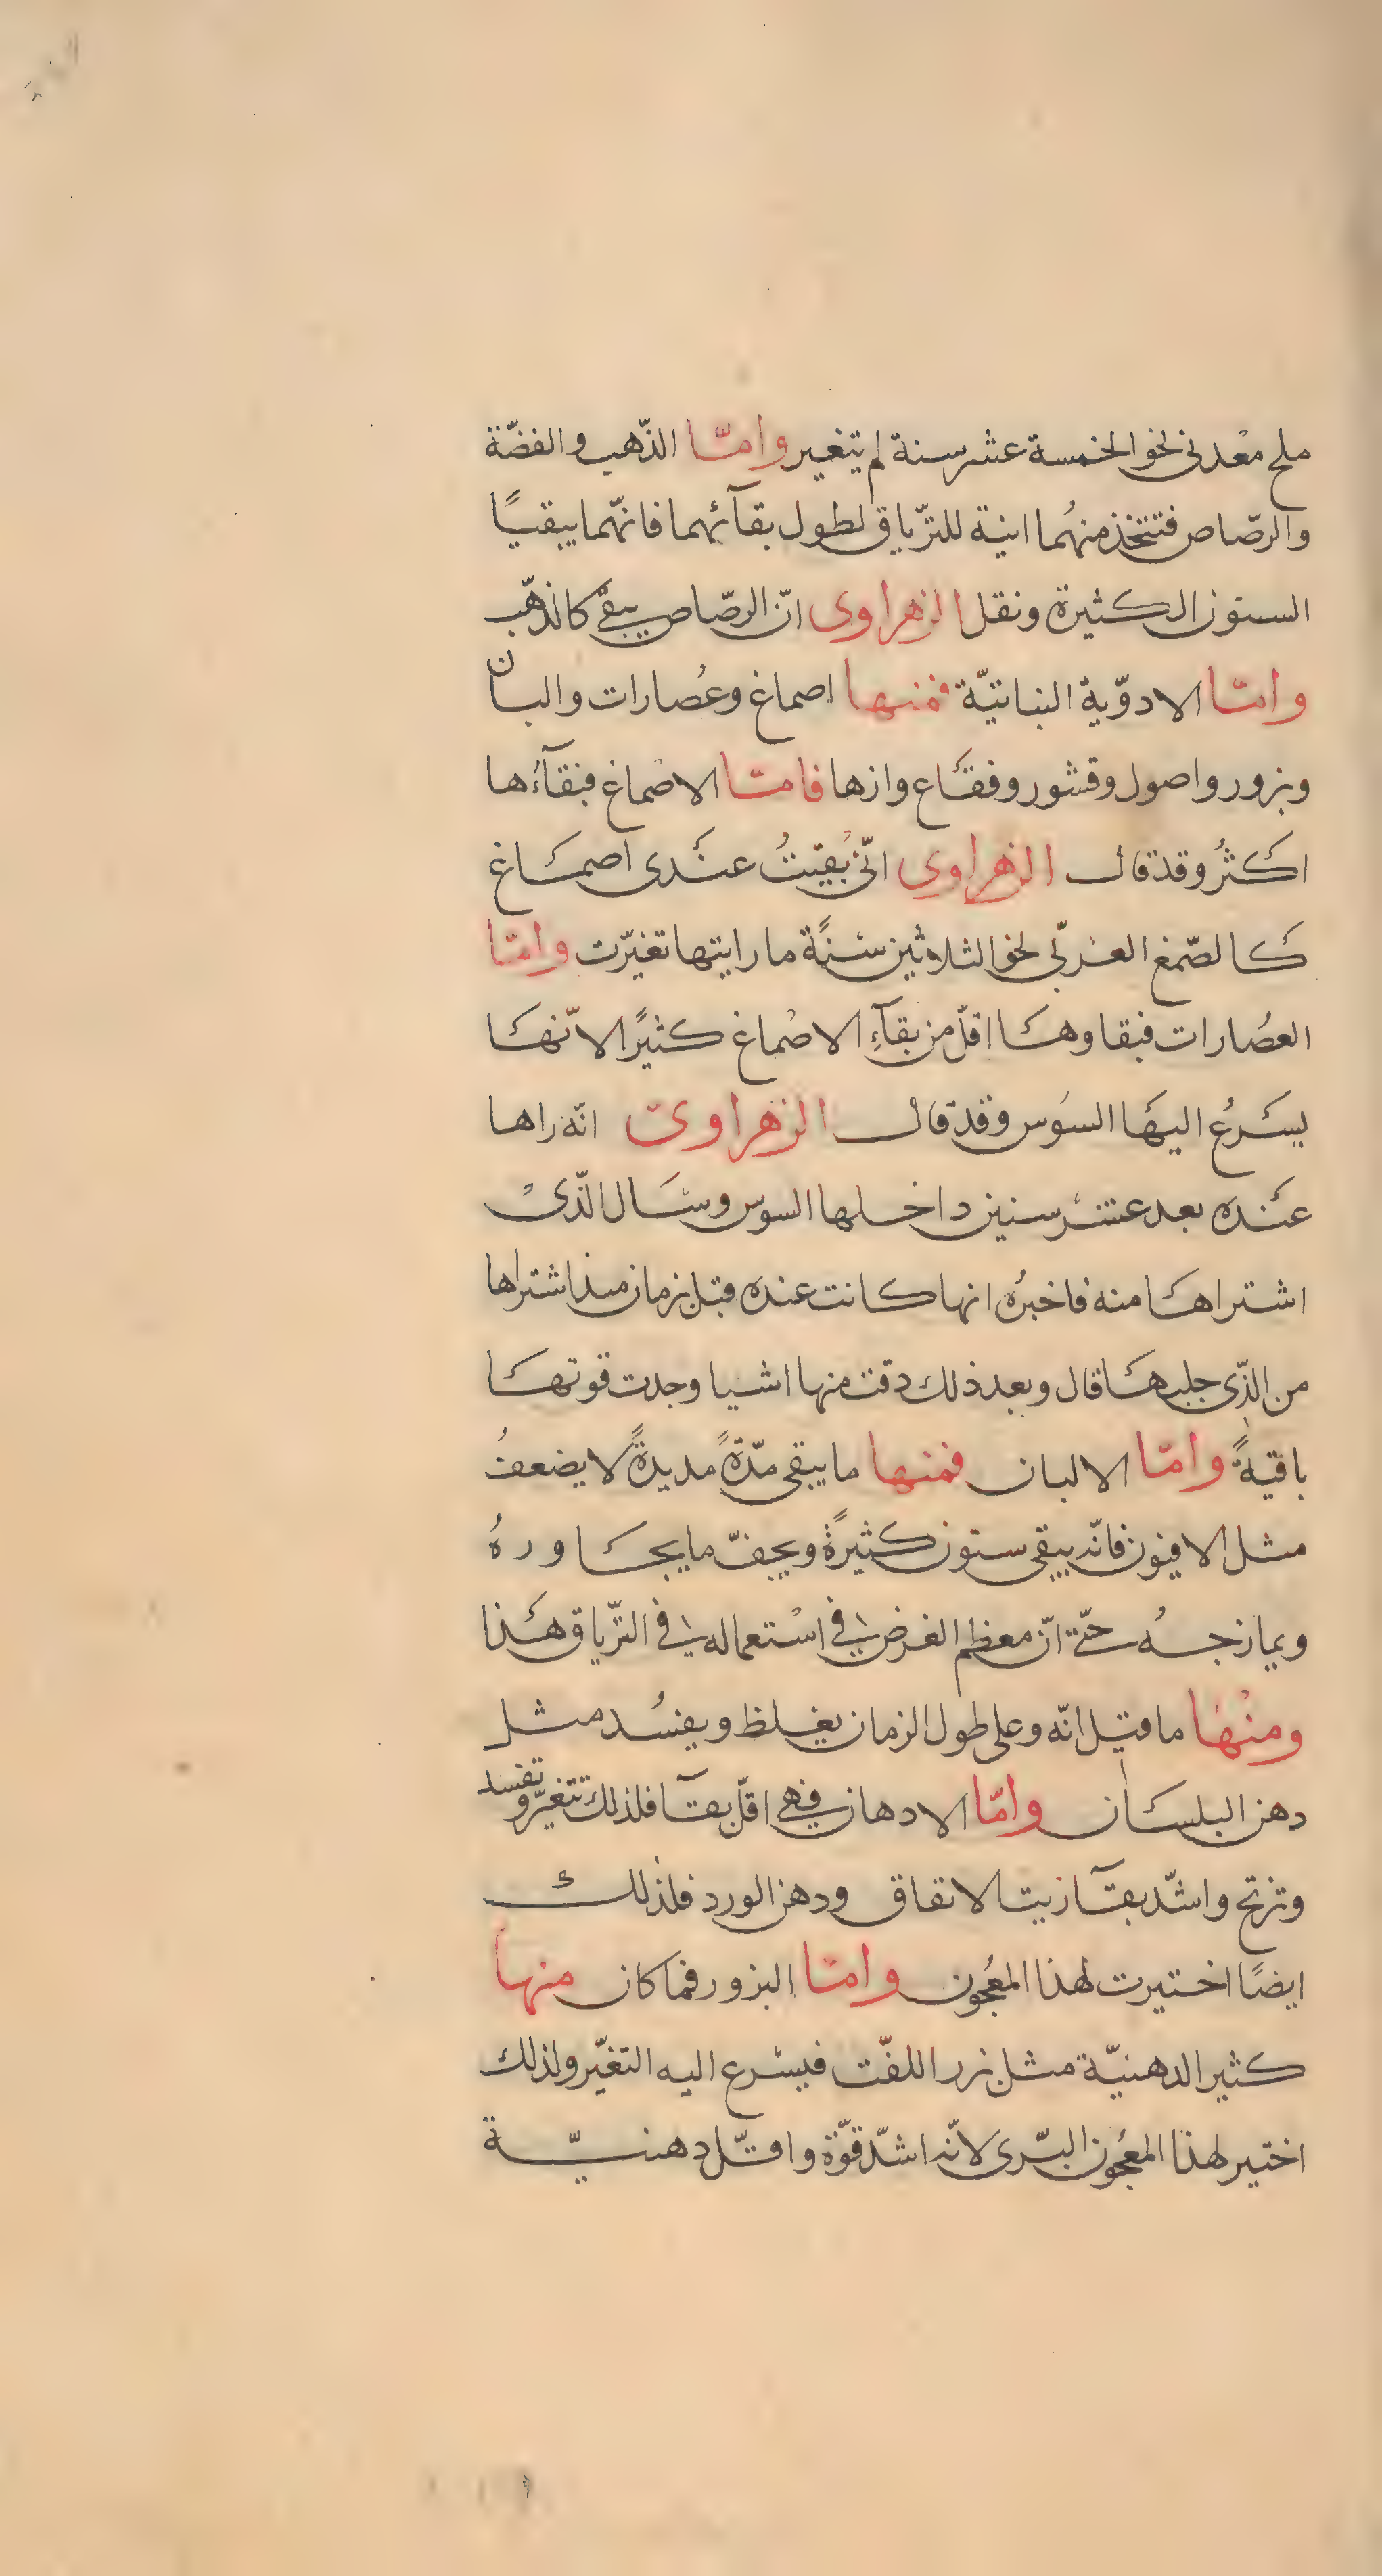 ملح معْدنى لنحو الخمسة عشر سنة لم يتغير وامّا الذّهب والفضّة
والرّصاص فتتّخذ منهُما انية للترّياق لطول بقآئهما فانّهما يبقيًا
السنون الكثيرة ونقل الزهراوى انّ الرصّاص يبقى كالذهّب
وامّا الادوّية النباتيّة فمنها اصماغ وعُصارات والبان
وبزور واصول وقشور وفقاع وازها فامّا الاضماغ فبقآءُها
اكثرُ وقد قال الزهراوي انّى بُقيتُ عنَدى اصمَاغ
كالصّمغ العربّى لنحو الثلاثين سنًة ما رايتها تغيّرت وامّا
العصُارات فبقاوهَا اقلّ من بقآءِ الاصْماغ كثيرًا لانّهَا
يسَرعُ اليهَا السوُس وقد قال الزهراوىّ انّه راها
عنَده بعد عشر سنين داخلها السوس وسَال الذّىْ
اشتراهَا منه فاخبرُه انها كانت عنده قبل زمان منذ اشتراها
من الذّى جلبهَا قال وبعد ذلك دقت منها اشيا وجدت قوتهَا
باقيةً وامّا الالبان فمنها ما يبقى مدّةً مديدةً لا يضعفُ
مثل الافيون فانّه يبقى سنون كثيرةً ويجفّ ما يجَاورهُ
ويمازجهُ حتّى انّ معظم الغرض فى اسْتعماله فى الترّياق هَذا
ومنْها ما قيل انّه وعلى طول الزمان يغلظ ويفسُد مثل
دهن البلسَان وامّا الادهان فهى اقلّ بقآ فلذلك تتغيّر وتفسد
وتزنخ واشدّ بقآ زيت الانفاق ودهن الورد فلذلك
ايضًا اختيرت لهذا المعُجون وامّا البزور فما كان منها
كثير الدهنيّة مثل بزر اللفّت فيسْرع اليه التغيّر ولذلك
اختير لهذا المعُجون البّرى لانّه اشدّ قوّة واقّل دهنيّة